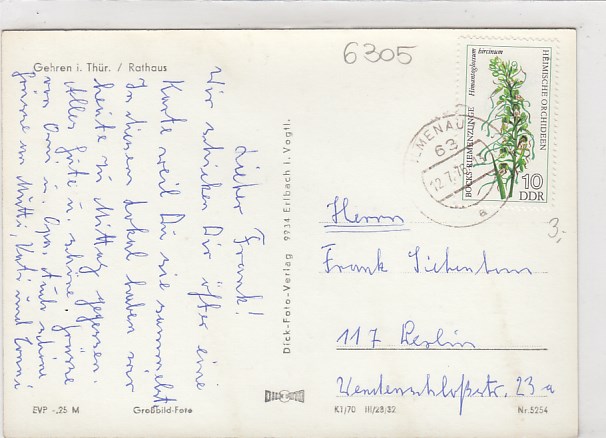 6305
Gehren i. Thür. / Rathaus
Lieber Frank!
Wir schicken Dir öfter eine
Karte weil Du sie sammelst
In diesem Lokal haben wir
heute zu Mittag gegessen.
Alles Gute u. schöne Grüsse
von Oma u. Opa. Auch schöne
Grüsse an Mutti, Vati und
EVP -,25 M
Großbild-Foto
Dick-Foto-Verlag 9734 Erlbach i. Vogtl.
Himantoglossum hircinum
BOCKS-RIEMENZUNGE
HEIMISCHE ORCHIDEEN
10
DDR
ILMENAU
63
12.7.76
a
3,-
Herrn
Frank
117 Berlin
Wendenschloßstr. 23 a
K1/70 III/28/32
Nr. 5254